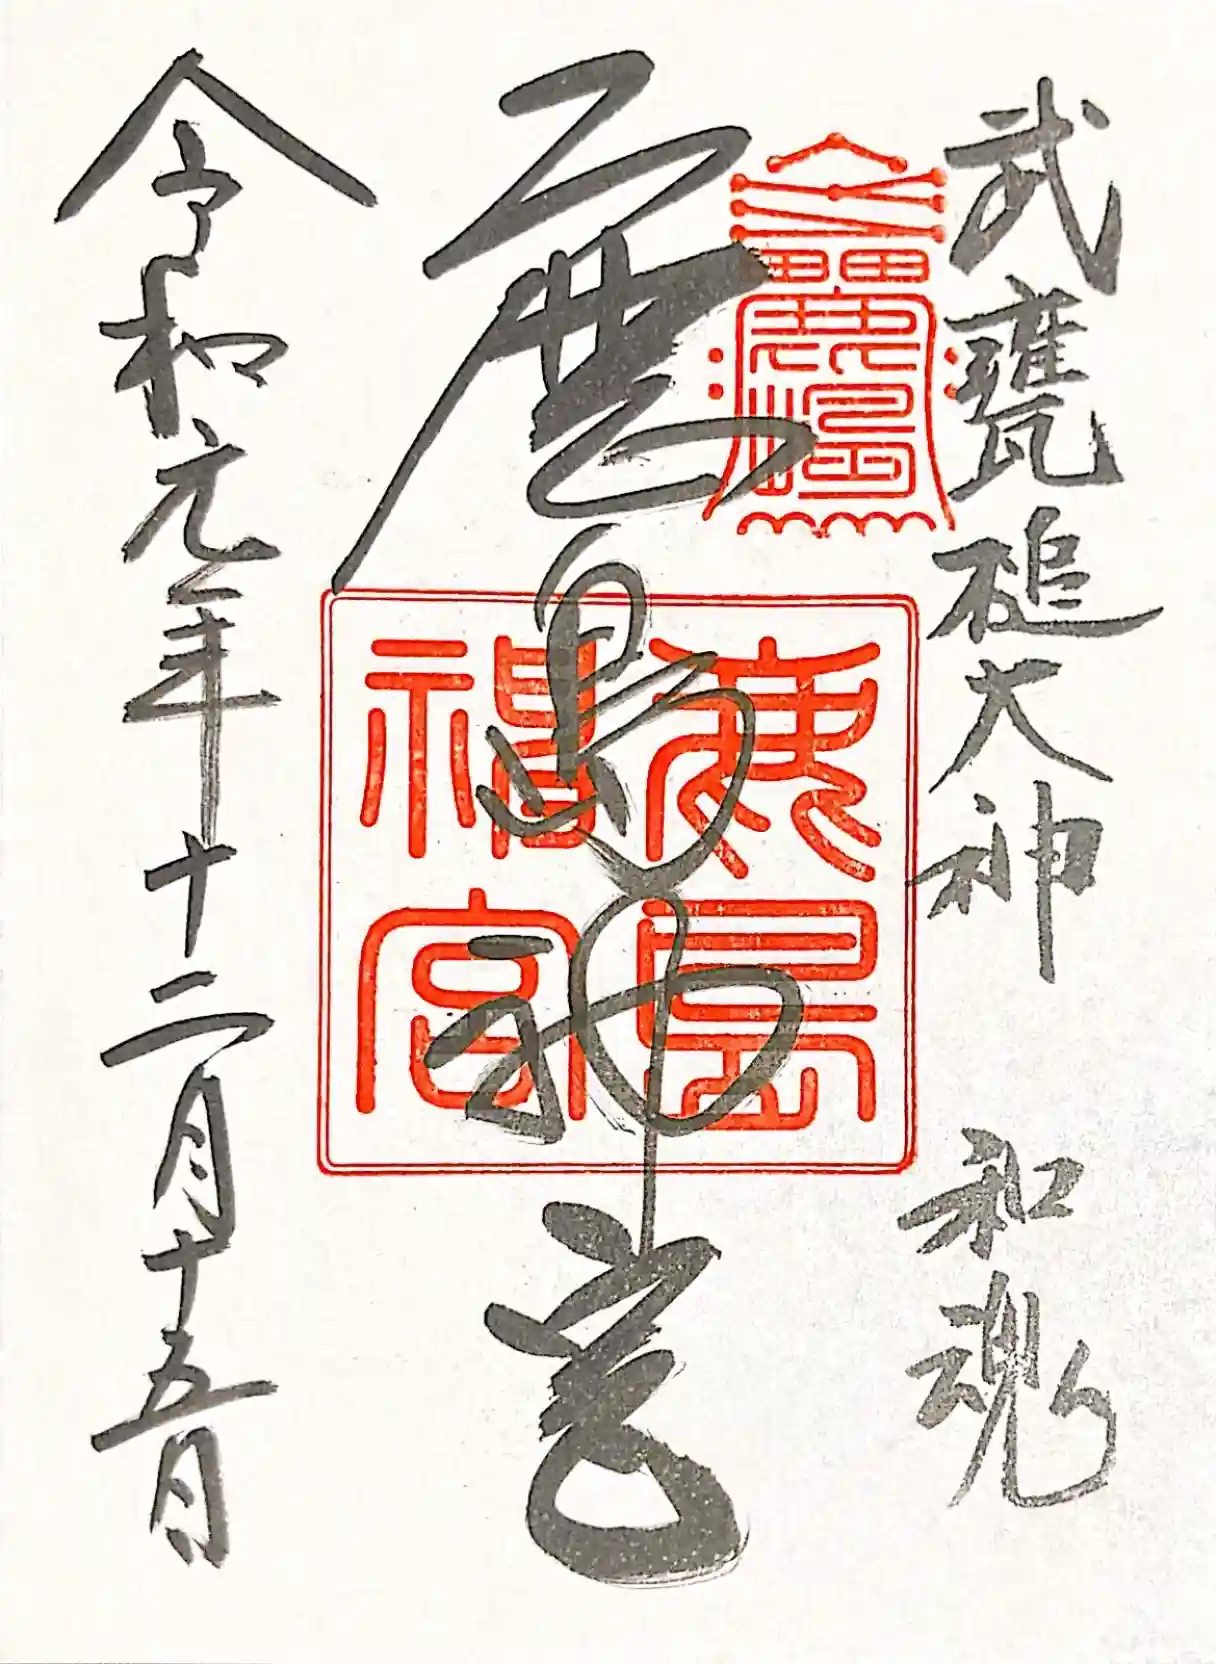 武甕槌大神 和魂
鹿島神宮
鹿島
神宮
令和元年十二月十五日